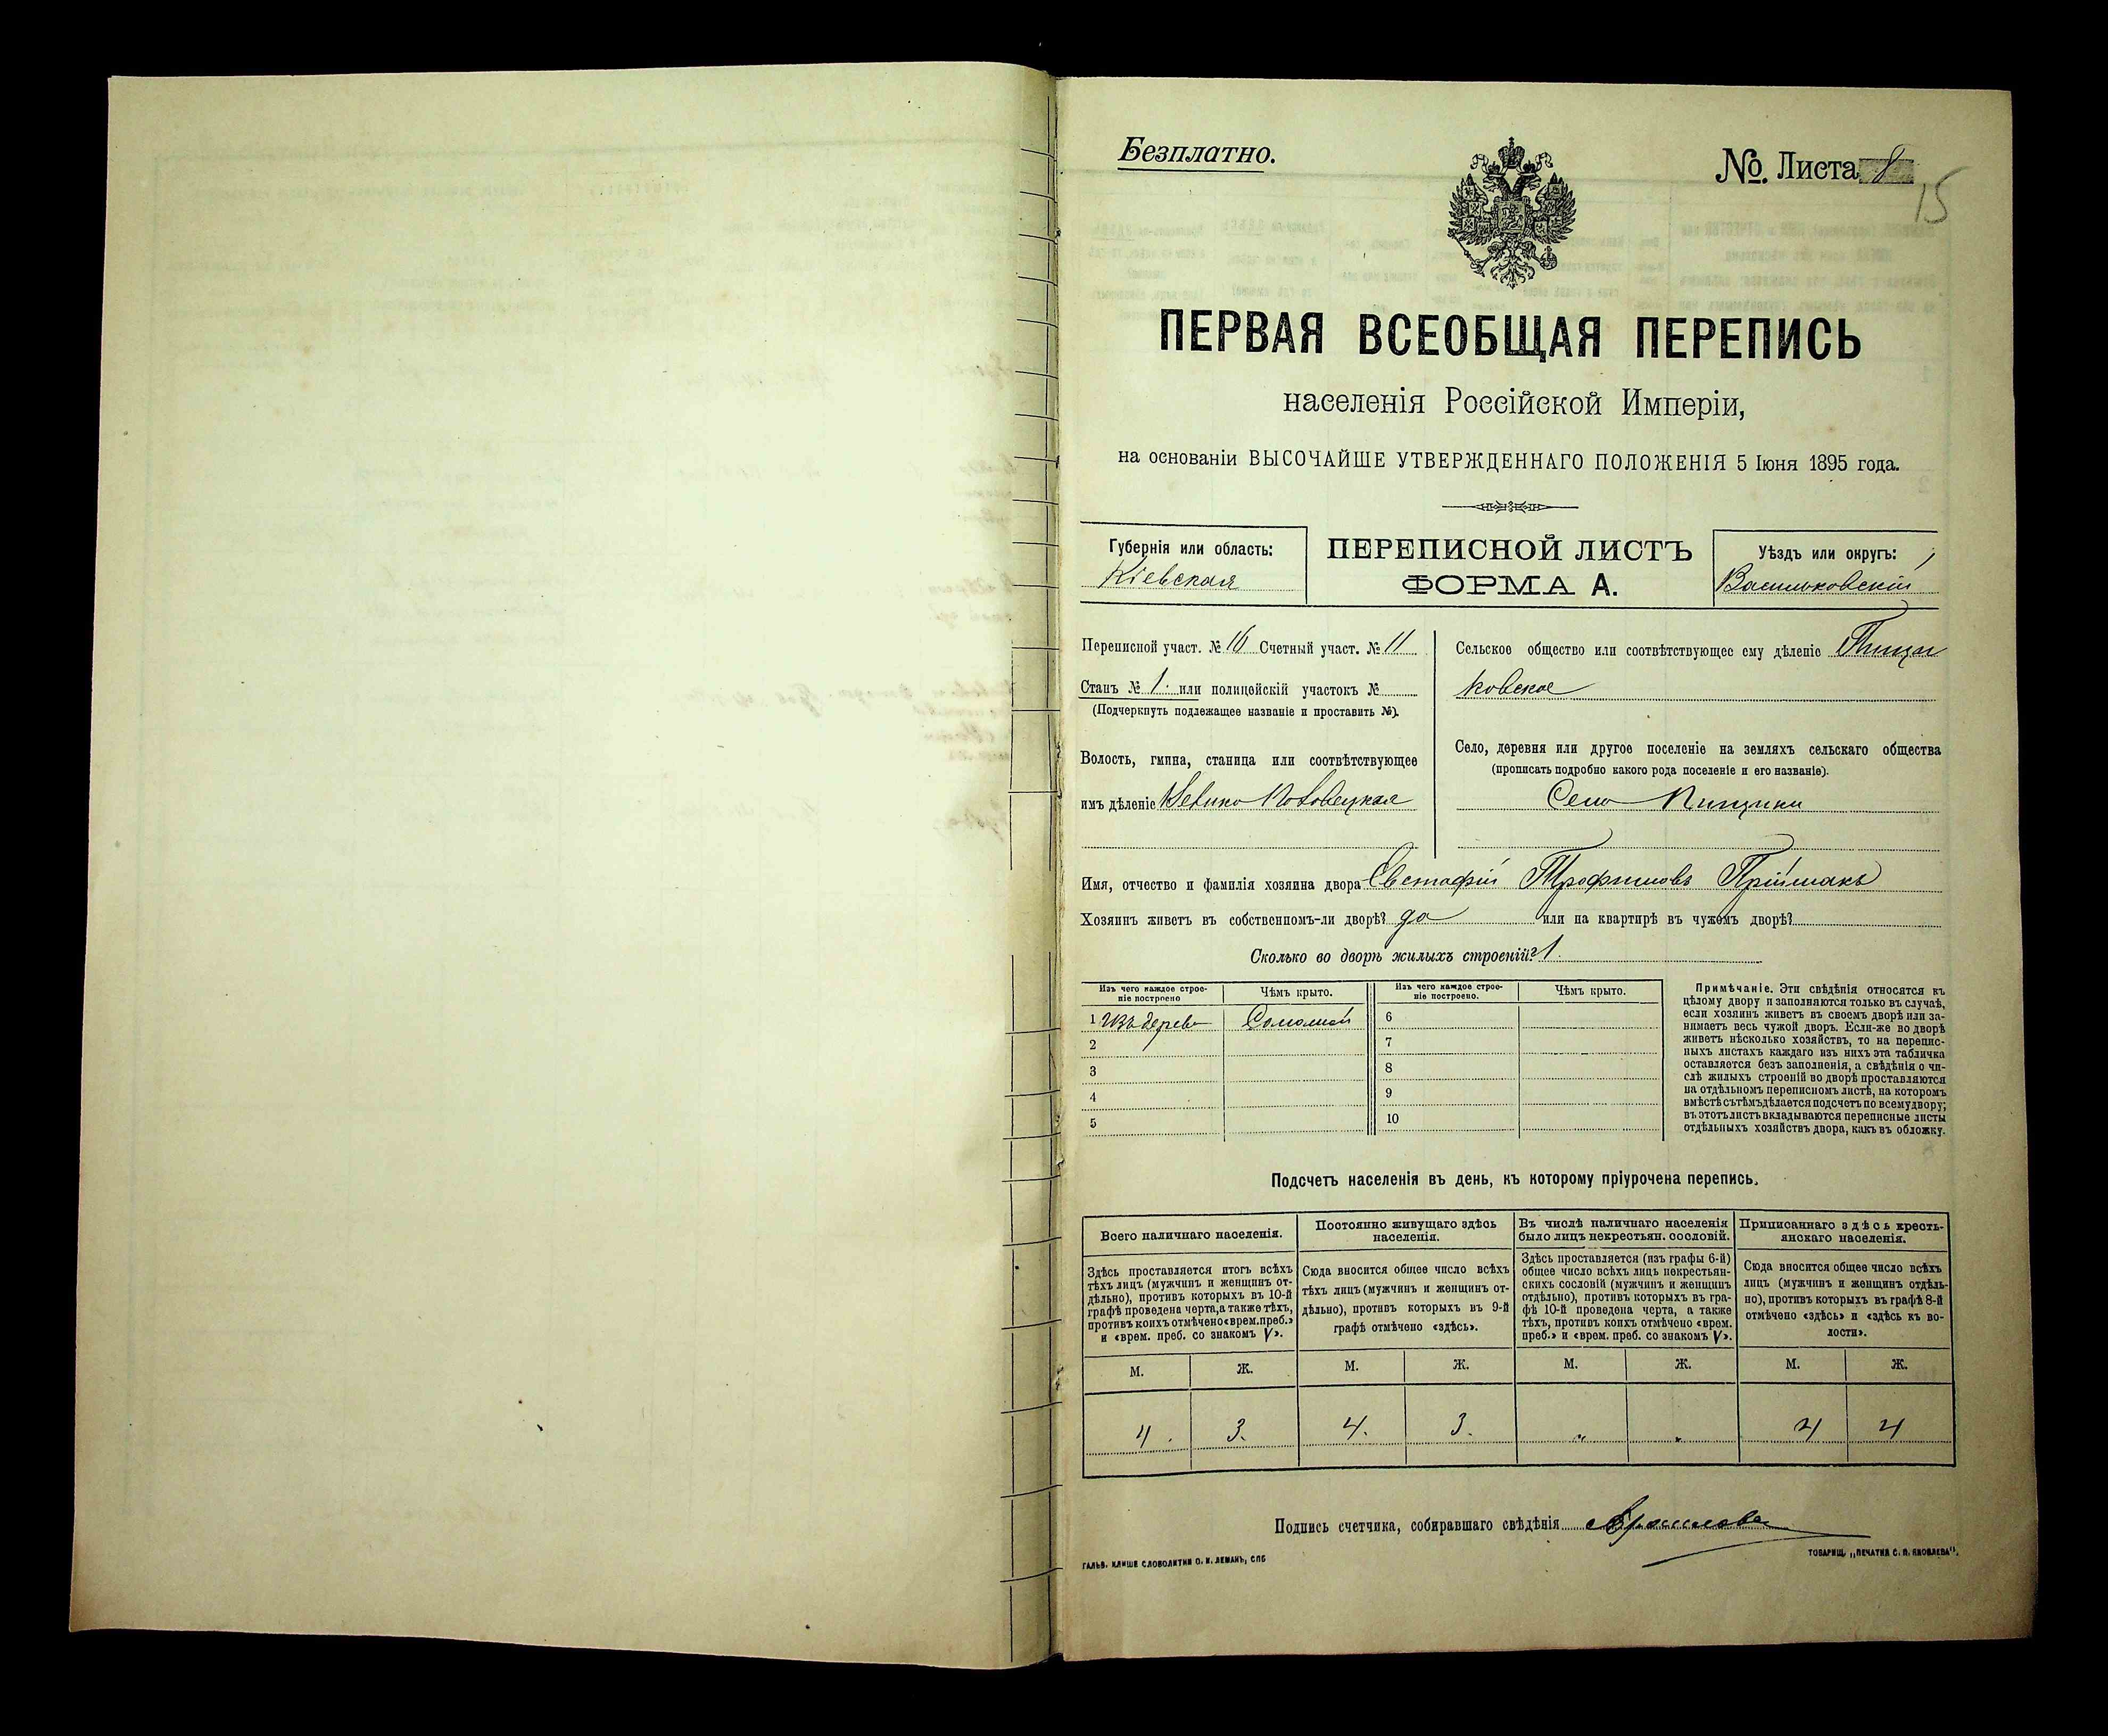 Безплатно.
№. Листа 8
15
ПЕРВАЯ ВСЕОБЩАЯ ПЕРЕПИСЬ
населенія Россійской Имперіи,
на основаніи ВЫСОЧАЙШЕ УТВЕРЖДЕННАГО ПОЛОЖЕНІЯ 5 Іюня 1895 года.
Губернія или область:
Кіевская
ПЕРЕПИСНОЙ ЛИСТЪ
ФОРМА А.
Уѣздъ или округъ:
Васильковскій
Переписной участ. № 16 Счетный участ. № 11
Станъ № 1. или полицейскій участокъ №
(Подчеркнуть подлежащее названіе и проставить №).
Волость, гмина, станица или соотвѣтствующее
имъ дѣленіе Велико Половецкая
Сельское общество или соотвѣтствующее ему дѣленіе Пищи
ковское
Село, деревня или другое поселеніе на земляхъ сельскаго общества
(прописать подробно какого рода поселеніе и его названіе).
Село Пищики
Имя, отчество и фамилія хозяина двора Евстафій Трофимовъ Пріймакъ
Хозяинъ живетъ въ собственномъ-ли дворѣ? да или на квартирѣ въ чужомъ дворѣ?
Сколько во дворѣ жилыхъ строеній? 1.
Изъ чего каждое строе-
ніе построено
Чѣмъ крыто.
Изъ чего каждое строе-
ніе построено.
Чѣмъ крыто.
1 Изъ дерева Соломой
2
3
4
5
6
7
8
9
10
Примѣчаніе. Эти свѣдѣнія относятся къ
цѣлому двору и заполняются только въ случаѣ,
если хозяинъ живетъ въ своемъ дворѣ или за-
нимаетъ весь чужой дворъ. Если-же во дворѣ
живетъ нѣсколько хозяйствъ, то на перепис-
ныхъ листахъ каждаго изъ нихъ эта табличка
оставляется безъ заполненія, а свѣдѣнія о чи-
слѣ жилыхъ строеній во дворѣ проставляются
на отдѣльномъ переписномъ листѣ, на которомъ
вмѣстѣ съ тѣмъ дѣлается подсчетъ по всему двору;
въ этотъ листъ вкладываются переписные листы
отдѣльныхъ хозяйствъ двора, какъ въ обложку.
Подсчетъ населенія въ день, къ которому пріурочена перепись.
Всего наличнаго населенія.
Здѣсь проставляется итогъ всѣхъ
тѣхъ лицъ (мужчинъ и женщинъ от-
дѣльно), противъ которыхъ въ 10-й
графѣ проведена черта, а также тѣхъ,
противъ коихъ отмѣчено «врем. преб.»
и «врем. преб. со знакомъ V».
Постоянно живущаго здѣсь
населенія.
Сюда вносится общее число всѣхъ
тѣхъ лицъ (мужчинъ и женщинъ от-
дѣльно), противъ которыхъ въ 9-й
графѣ отмѣчено «здѣсь».
Въ числѣ наличнаго населенія
было лицъ некрестьян. сословій.
Здѣсь проставляется (изъ графы 6-й)
общее число всѣхъ лицъ некрестьян-
скихъ сословій (мужчинъ и женщинъ
отдѣльно), противъ которыхъ въ гра-
фѣ 10-й проведена черта, а также
тѣхъ, противъ коихъ отмѣчено «врем.
преб.» и «врем. преб. со знакомъ V».
Приписаннаго здѣсь кресть-
янскаго населенія.
Сюда вносится общее число всѣхъ
лицъ (мужчинъ и женщинъ отдѣль-
но), противъ которыхъ въ графѣ 8-й
отмѣчено «здѣсь» и «здѣсь къ во-
лости».
М. Ж. М. Ж. М. Ж. М. Ж.
4. 3. 4. 3. „ „ 4 4
Подпись счетчика, собиравшаго свѣдѣнія
ГАЛЬВ. КЛИШЕ СЛОВОЛИТНИ О. И. ЛЕМАНЪ, СПБ
ТОВАРИЩ. „ПЕЧАТНЯ С. П. ЯКОВЛЕВА".